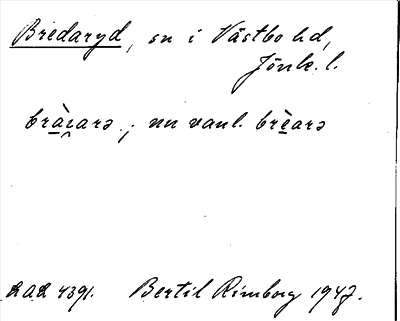 Bredaryd, sn i Västbo hd,
Jönk. l.
brà̱i̯arə ; nu vanl. brè̱arə
LAL 4391. Bertil Rimborg 1947.